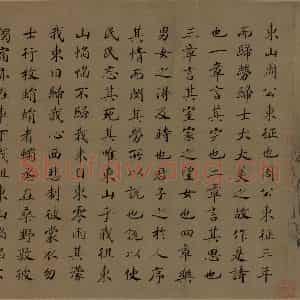 東山周公東征也周公東征三年
而歸勞歸士大夫美之故作是詩
也一章言其完也二章言其思也
三章言其室家之望女也四章樂
男女之得及時也君子之於人序
其情而閔其勞所以說也說以使
民民忘其死其唯東山乎我徂東
山慆慆不歸我來自東零雨其濛
我東曰歸我心西悲制彼裳衣勿
士行枚蜎蜎者蠋烝在桑野敦彼
獨宿亦在車下我徂東山慆慆不